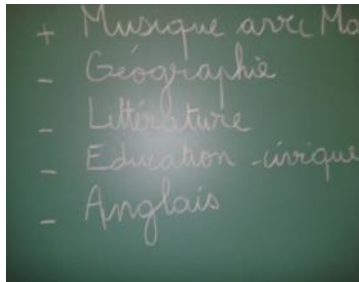 + Musique avec Ma
- Géographie
- Littérature
- Education civique
- Anglais